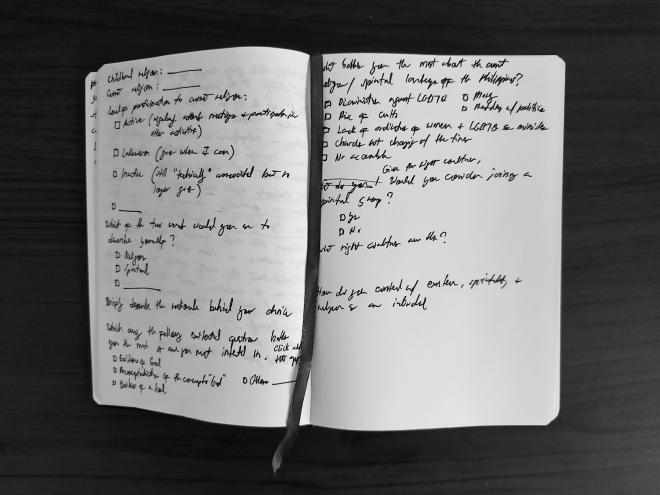 Childhood religion: ______
Current religion: ______
Level of participation to current religion:
□ Active (regularly attend meetings + participate in
other activities)
□ Lukewarm (go when I can)
□ Inactive (still "technically" associated but no
longer go)
□ ______
Which of the two words would you use to
describe yourself?
□ Religious
□ Spiritual
□ ______
Briefly describe the rationale behind your choice
Which among the following existential questions bother
you the most or are you most interested in.
□ Existence of God
□ of the concept of "God"
□ Existence of a Soul
□ Others ______
What bothers you the most about the current
religious / spiritual landscape of the Philippines?
□ Discrimination against LGBTQ
□ Rise of cults
□ Lack of ordination of women + LGBTQ as ministers
□ Church not changing w/ the times
□ No
□ Money
□ w/ politics
Given the right conditions,
would you consider joining a
spiritual group?
□ Yes
□ No
What right conditions are these?
How do you connect w/ existence, spirituality, +
religion as an individual